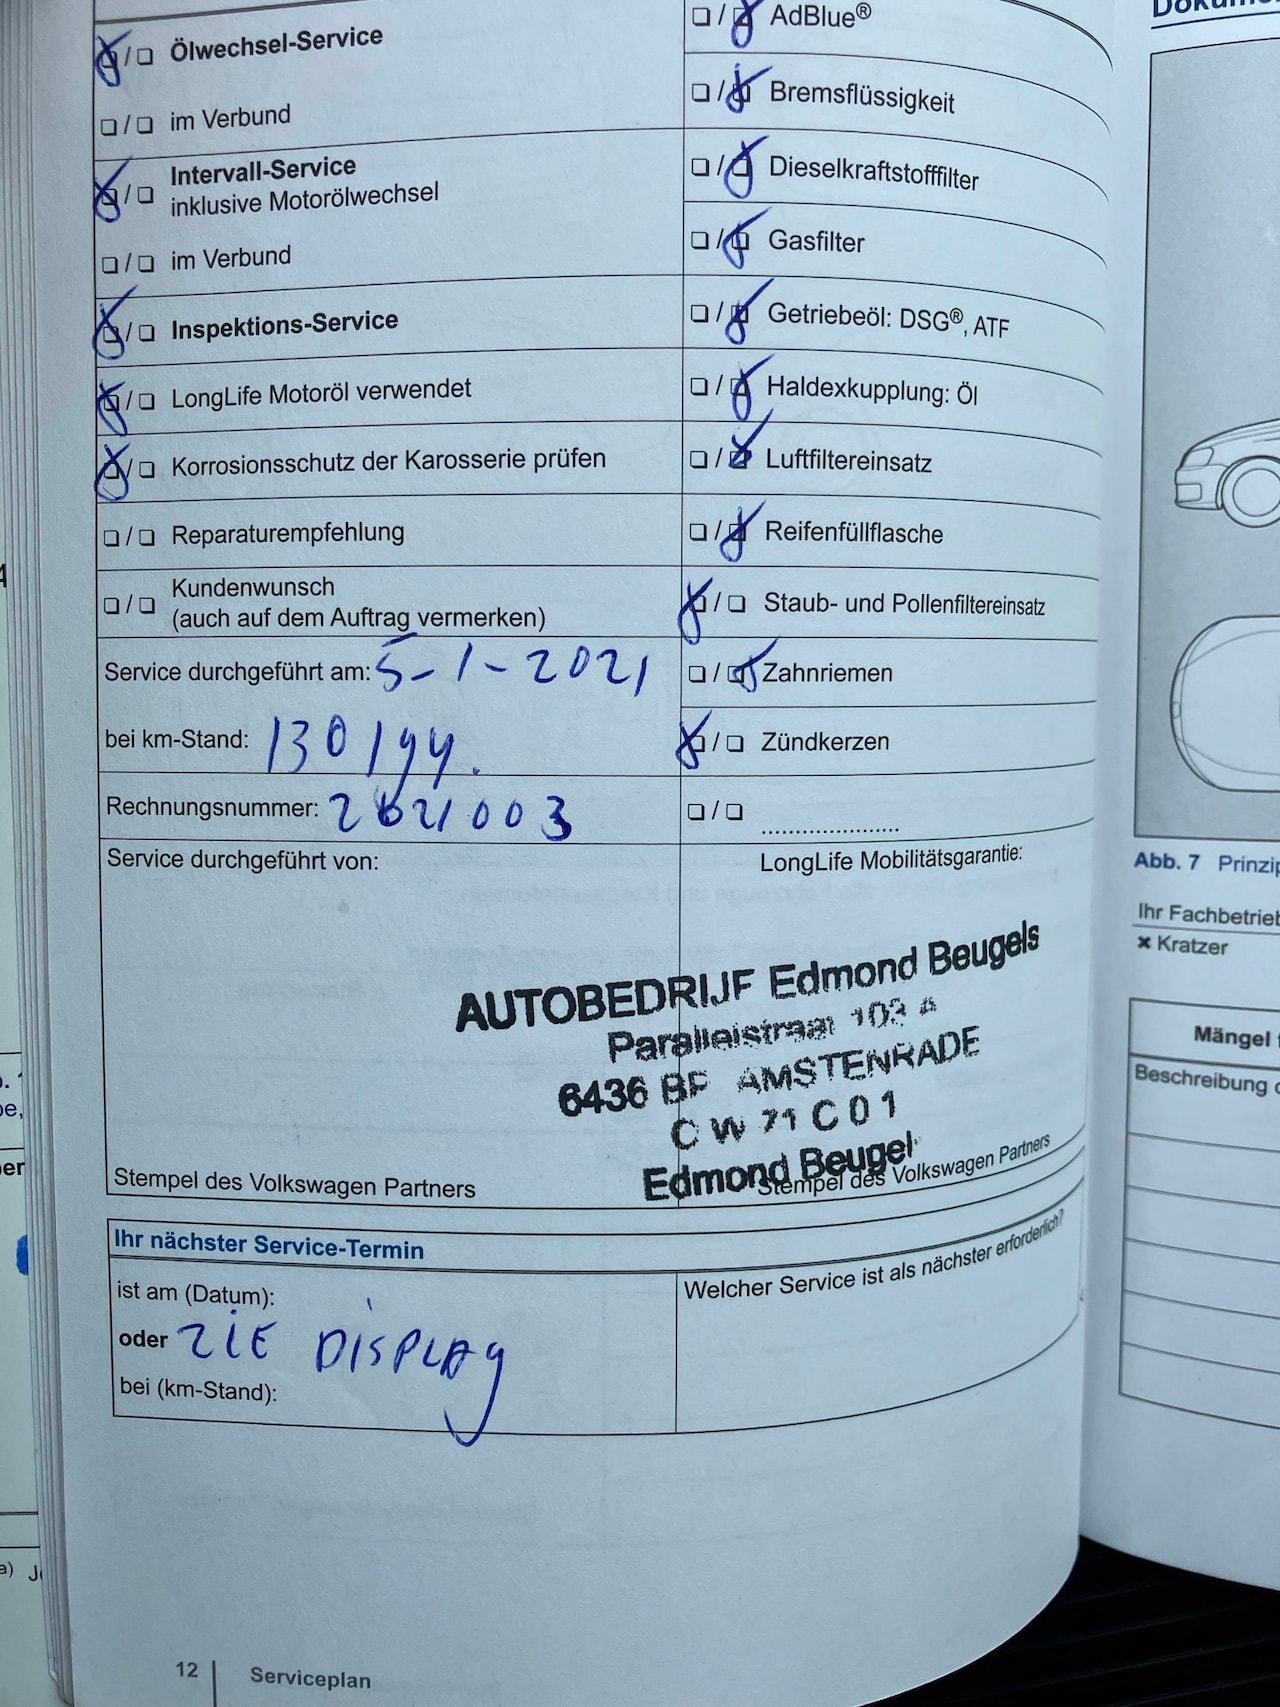 Ölwechsel-Service
im Verbund
Intervall-Service
inklusive Motorölwechsel
im Verbund
Inspektions-Service
LongLife Motoröl verwendet
Korrosionsschutz der Karosserie prüfen
Reparaturempfehlung
Kundenwunsch
(auch auf dem Auftrag vermerken)
Service durchgeführt am: 5-1-2021
bei km-Stand: 130199.
Rechnungsnummer: 2021003
AdBlue®
Bremsflüssigkeit
Dieselkraftstofffilter
Gasfilter
Getriebeöl: DSG®, ATF
Haldexkupplung: Öl
Luftfiltereinsatz
Reifenfüllflasche
Staub- und Pollenfiltereinsatz
Zahnriemen
Zündkerzen
Service durchgeführt von:
LongLife Mobilitätsgarantie:
AUTOBEDRIJF Edmond Beugels
Parallelstraat 103 A
6436 BP AMSTENRADE
CW71C01
Edmond Beugel
Stempel des Volkswagen Partners
Stempel des Volkswagen Partners
Ihr nächster Service-Termin
ist am (Datum):
oder ZIE DISPLAY
bei (km-Stand):
Welcher Service ist als nächster erforderlich?
12
Serviceplan
Abb. 7 Prinzip
Ihr Fachbetrieb
✖ Kratzer
Mängel
Beschreibung